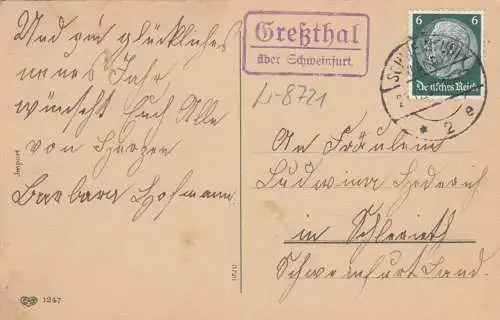 Und ein glückliches
neues Jahr
wünscht Euch Alle
von Herzen
Barbara Hofmann.
Import
1247
Greßthal
über Schweinfurt.
Li-8721
6 6
Deutsches Reich
* 2 e
An Fräulein
Ludwina Hederich
in Schleerieth
Schweinfurt Land.